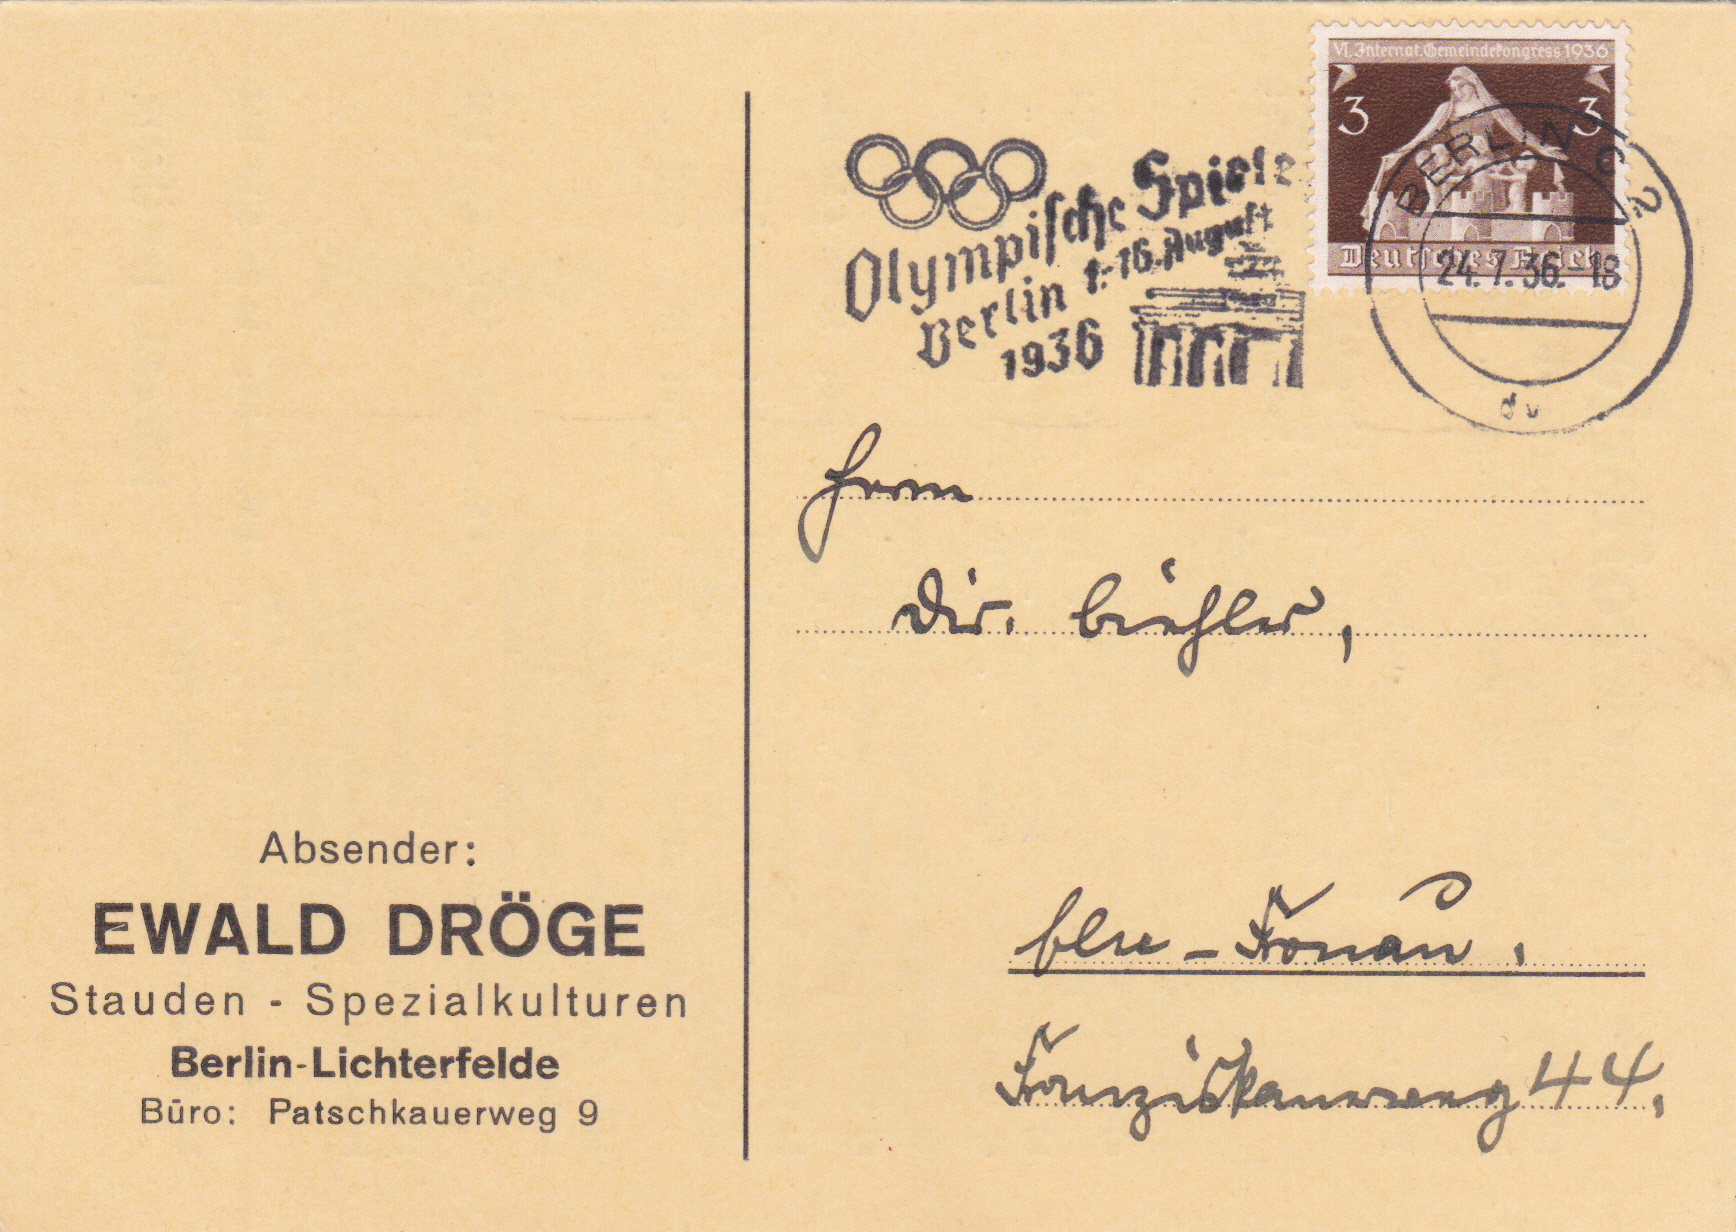 VI. Internat. Gemeindekongress 1936
3 3
Deutsches Reich
BERLIN C 2
24.7.36.-18
dv
Olympische Spiele
Berlin 1.-16. August
1936
Herrn
Dir. Bühler,
Bln - Fronau.
Franziskanerweg 44.
Absender:
EWALD DRÖGE
Stauden - Spezialkulturen
Berlin-Lichterfelde
Büro: Patschkauerweg 9